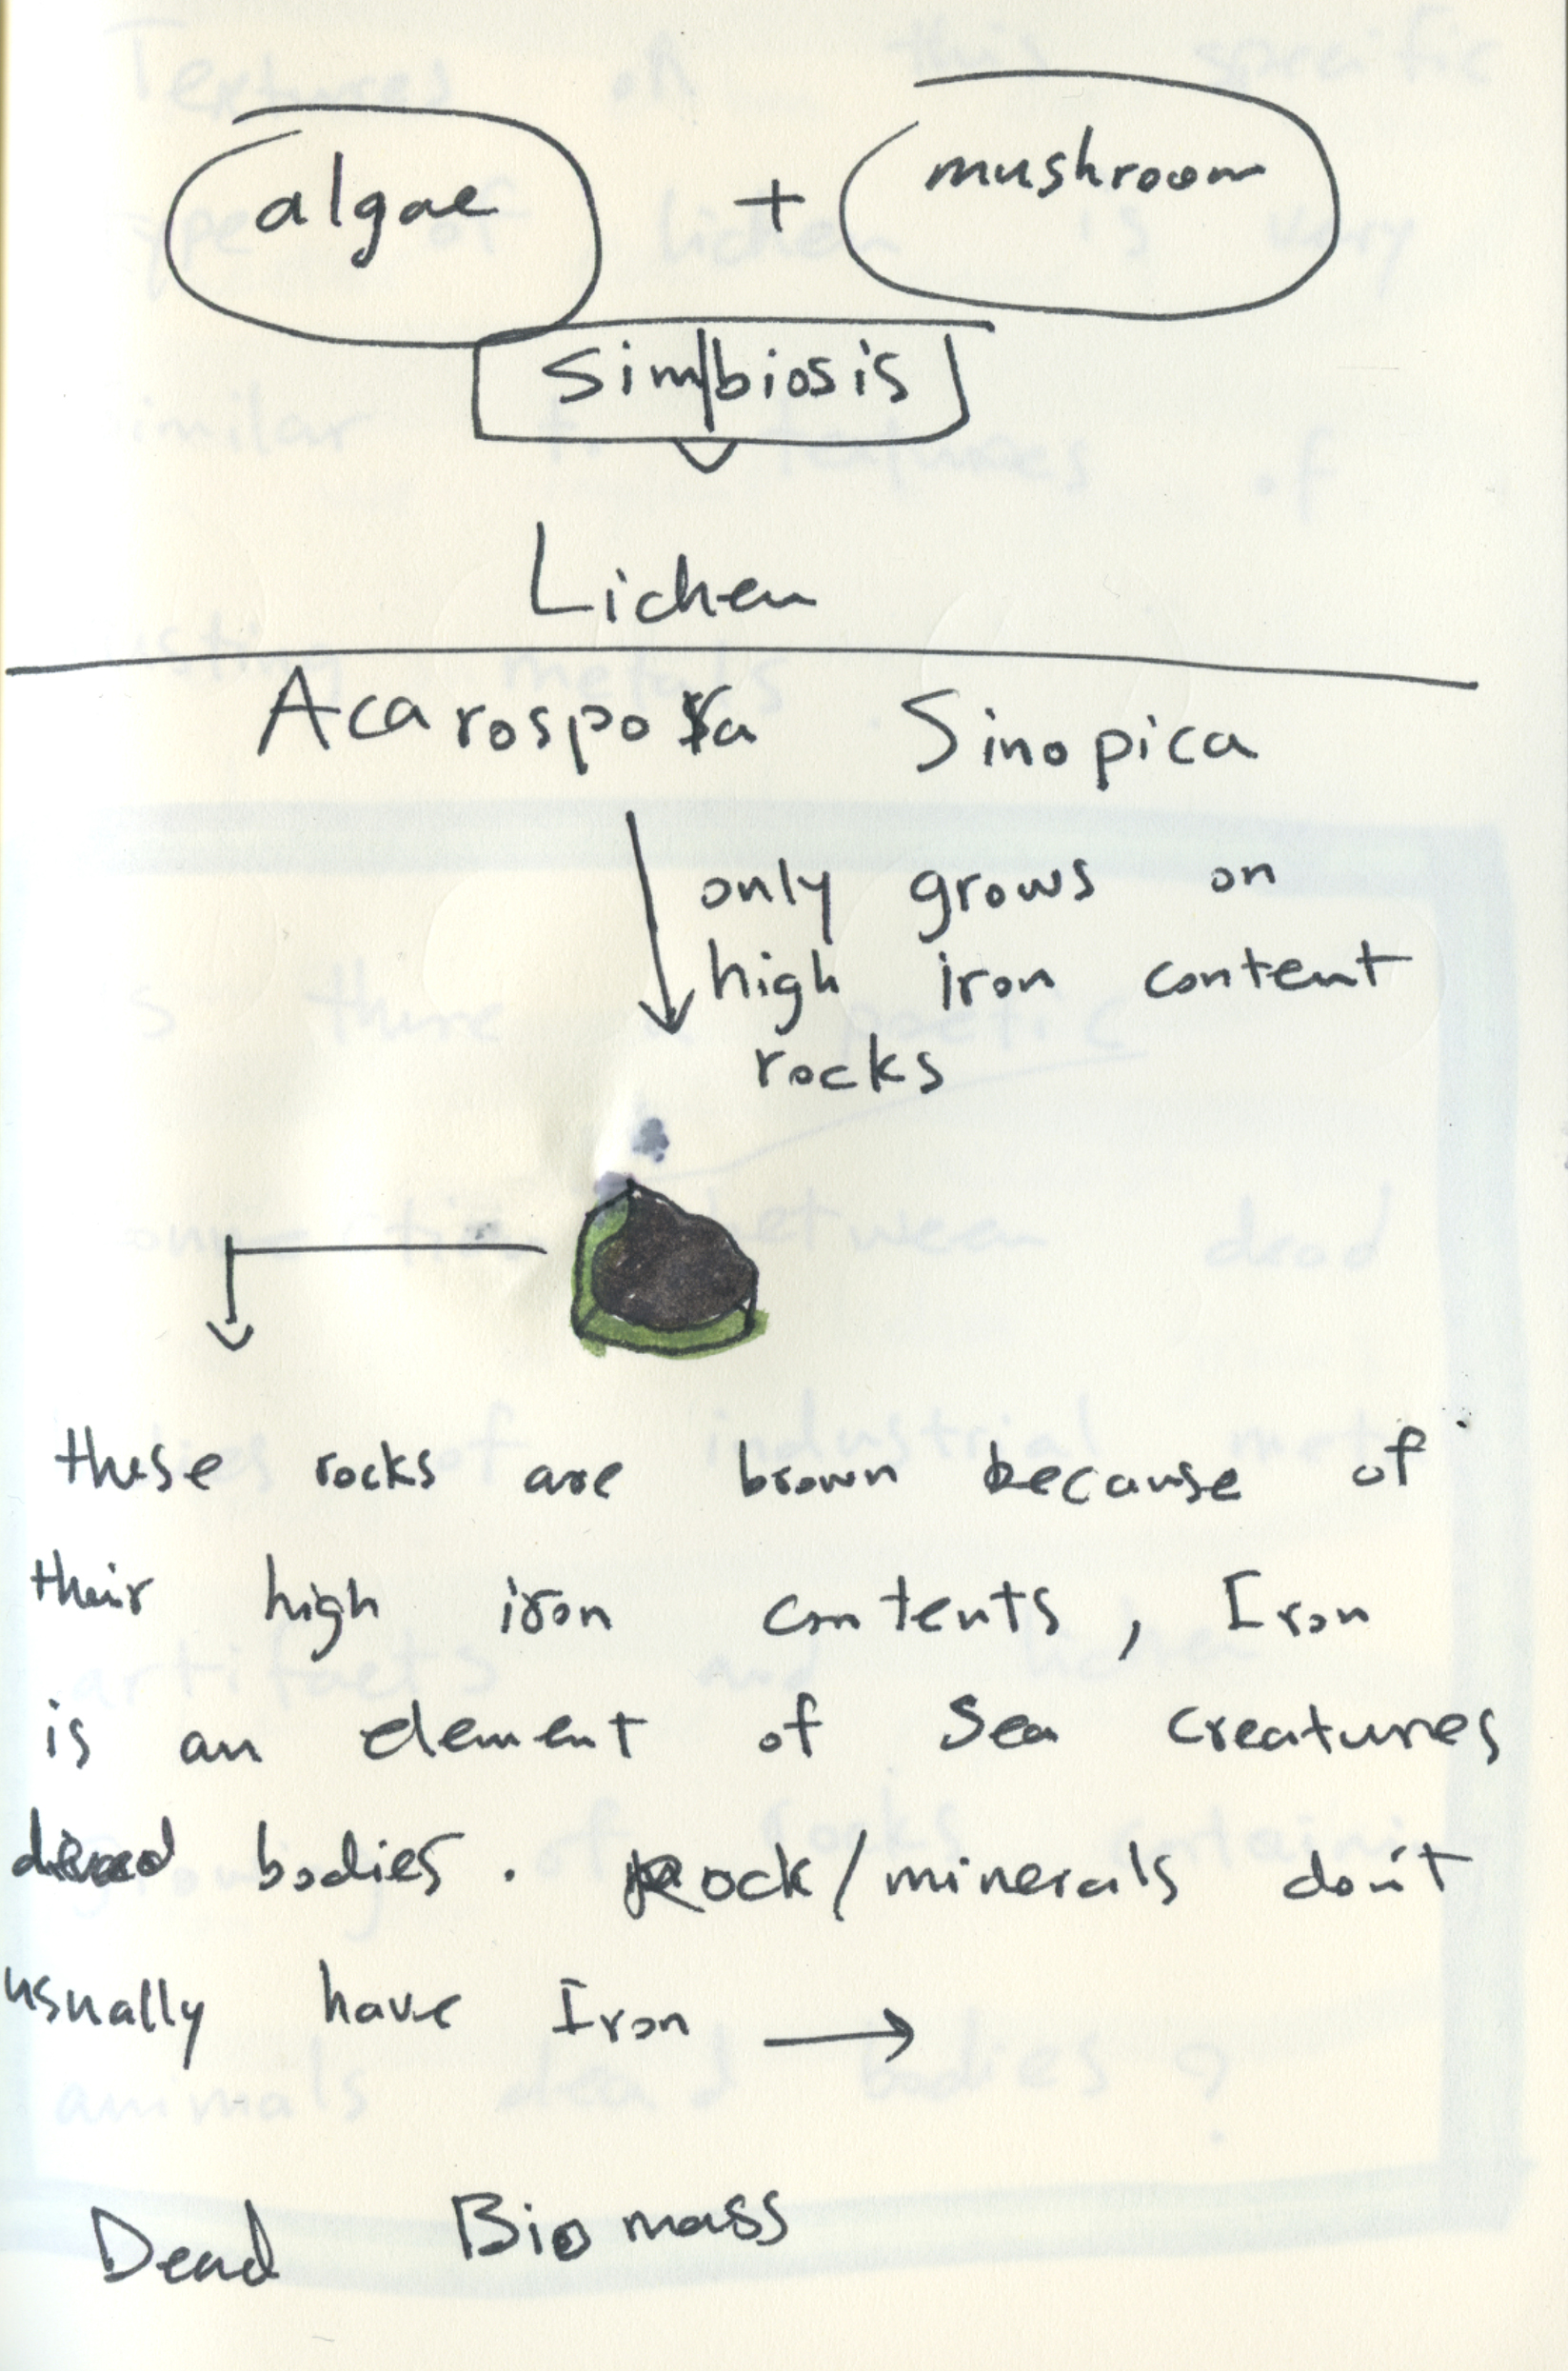 algae + mushroom
Simbiosis
Lichen
Acarospora Sinopica
only grows on
high iron content
rocks
these rocks are brown because of
their high iron contents, Iron
is an element of Sea creatures
dead bodies. Rock/minerals don't
usually have Iron →
Dead Biomass